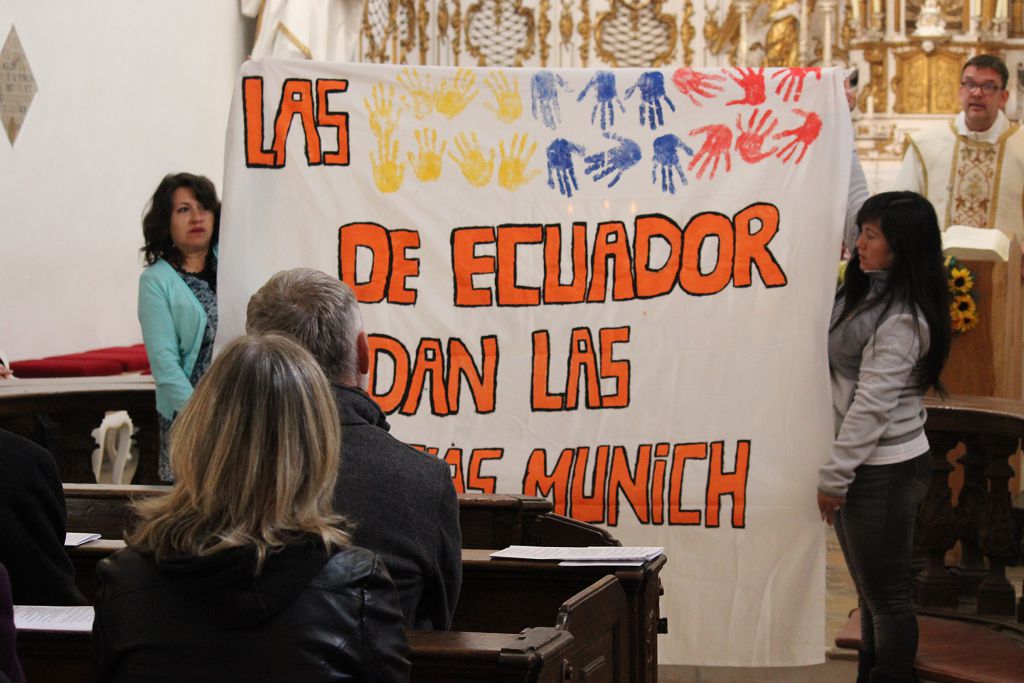 LAS
DE ECUADOR
DAN LAS
MUNICH